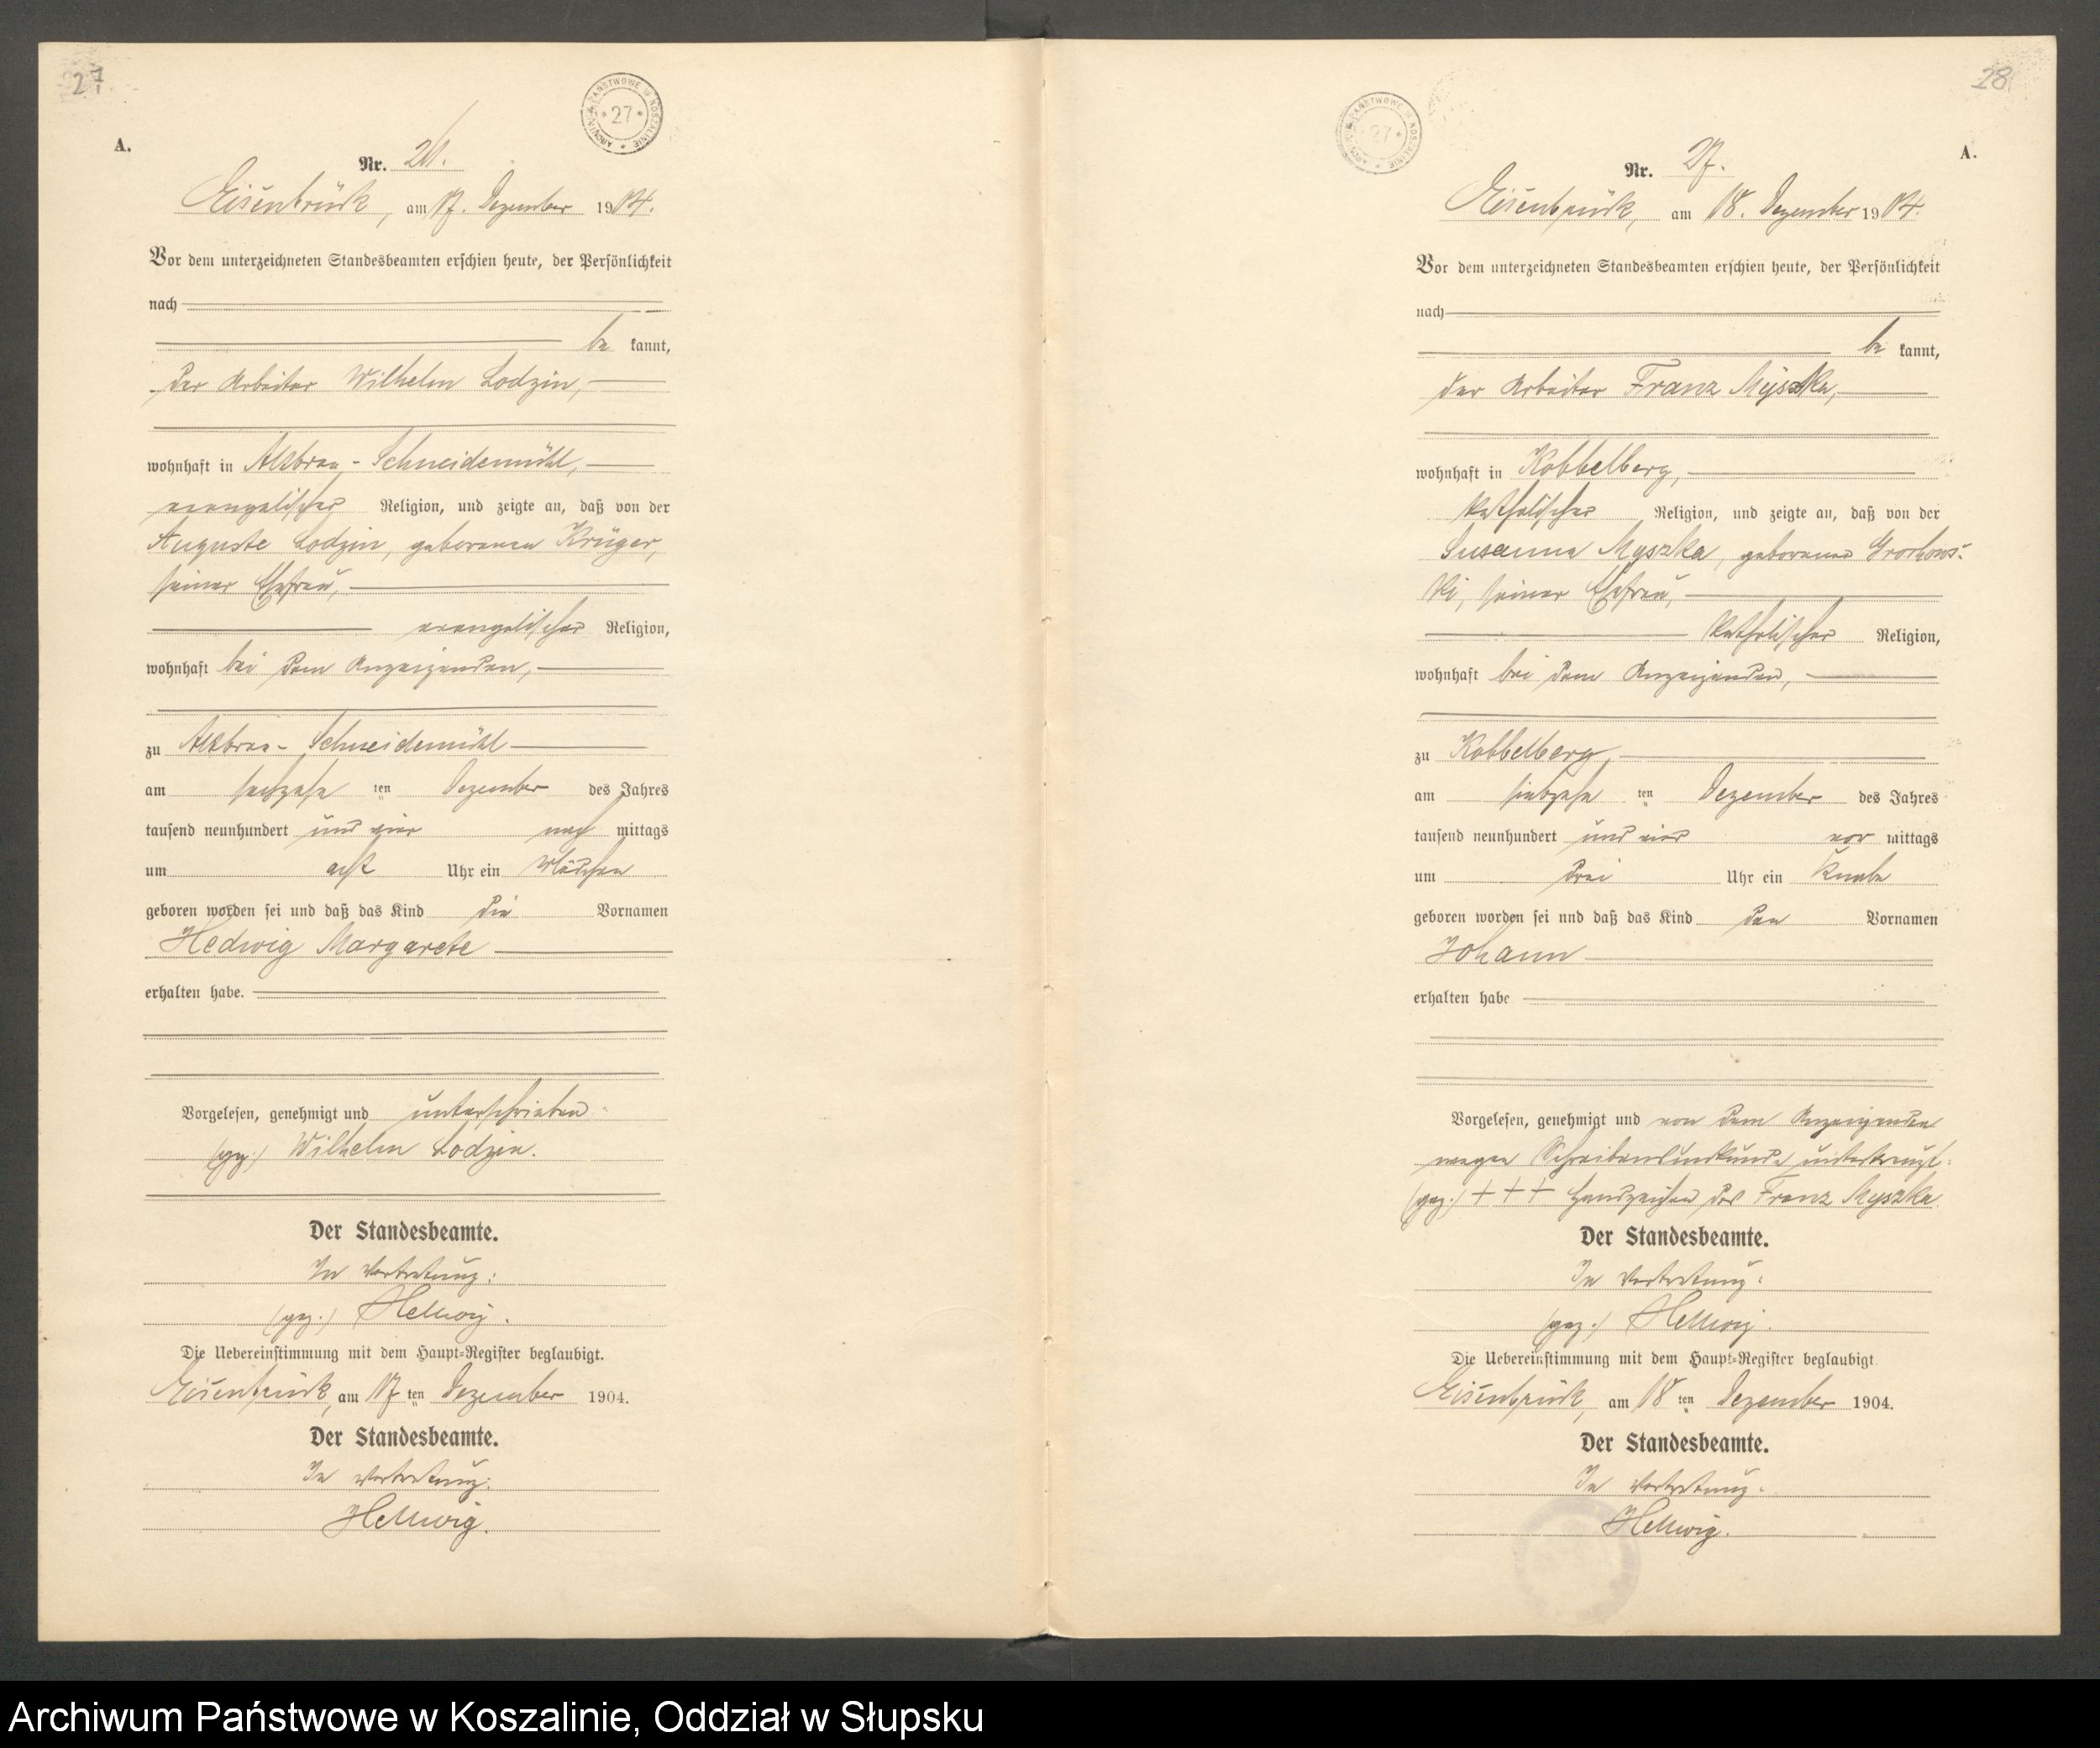 27
ARCHIWUM PAŃSTWOWE W KOSZALINIE
* 27 *
A.
Nr. 26.
Eisenbrück, am 17. Dezember 1904.
Vor dem unterzeichneten Standesbeamten erschien heute, der Persönlichkeit
nach
be kannt,
der Arbeiter Wilhelm Lodzin,
wohnhaft in Altbraa-Schneidemühl,
evangelischer Religion, und zeigte an, daß von der
Auguste Lodzin, geborenen Krüger,
seiner Ehefrau,
evangelischer Religion,
wohnhaft bei dem Anzeigenden,
zu Altbraa-Schneidemühl
am sechzehn ten Dezember des Jahres
tausend neunhundert und vier nach mittags
um acht Uhr ein Mädchen
geboren worden sei und daß das Kind die Vornamen
Hedwig Margarete
erhalten habe.
Vorgelesen, genehmigt und unterschrieben:
(gez.) Wilhelm Lodzin.
Der Standesbeamte.
In Vertretung:
(gez.) Hellwig.
Die Uebereinstimmung mit dem Haupt-Register beglaubigt.
Eisenbrück, am 17 ten Dezember 1904.
Der Standesbeamte.
In Vertretung:
Hellwig.
28
ARCHIWUM PAŃSTWOWE W KOSZALINIE
* 27 *
A.
Nr. 27.
Eisenbrück, am 18. Dezember 1904.
Vor dem unterzeichneten Standesbeamten erschien heute, der Persönlichkeit
nach
be kannt,
der Arbeiter Franz Myszka,
wohnhaft in Kobbelberg,
katholischer Religion, und zeigte an, daß von der
Susanna Myszka, geborenen Grochows-
ki, seiner Ehefrau,
katholischer Religion,
wohnhaft bei dem Anzeigenden,
zu Kobbelberg,
am siebzehn ten Dezember des Jahres
tausend neunhundert und vier vor mittags
um drei Uhr ein Knabe
geboren worden sei und daß das Kind den Vornamen
Johann
erhalten habe
Vorgelesen, genehmigt und von dem Anzeigenden
wegen Schreibensunkunde unterkreuzt:
(gez.) +++ Handzeichen des Franz Myszka.
Der Standesbeamte.
In Vertretung:
(gez.) Hellwig.
Die Uebereinstimmung mit dem Haupt-Register beglaubigt
Eisenbrück, am 18 ten Dezember 1904.
Der Standesbeamte.
In Vertretung:
Hellwig.
Archiwum Państwowe w Koszalinie, Oddział w Słupsku